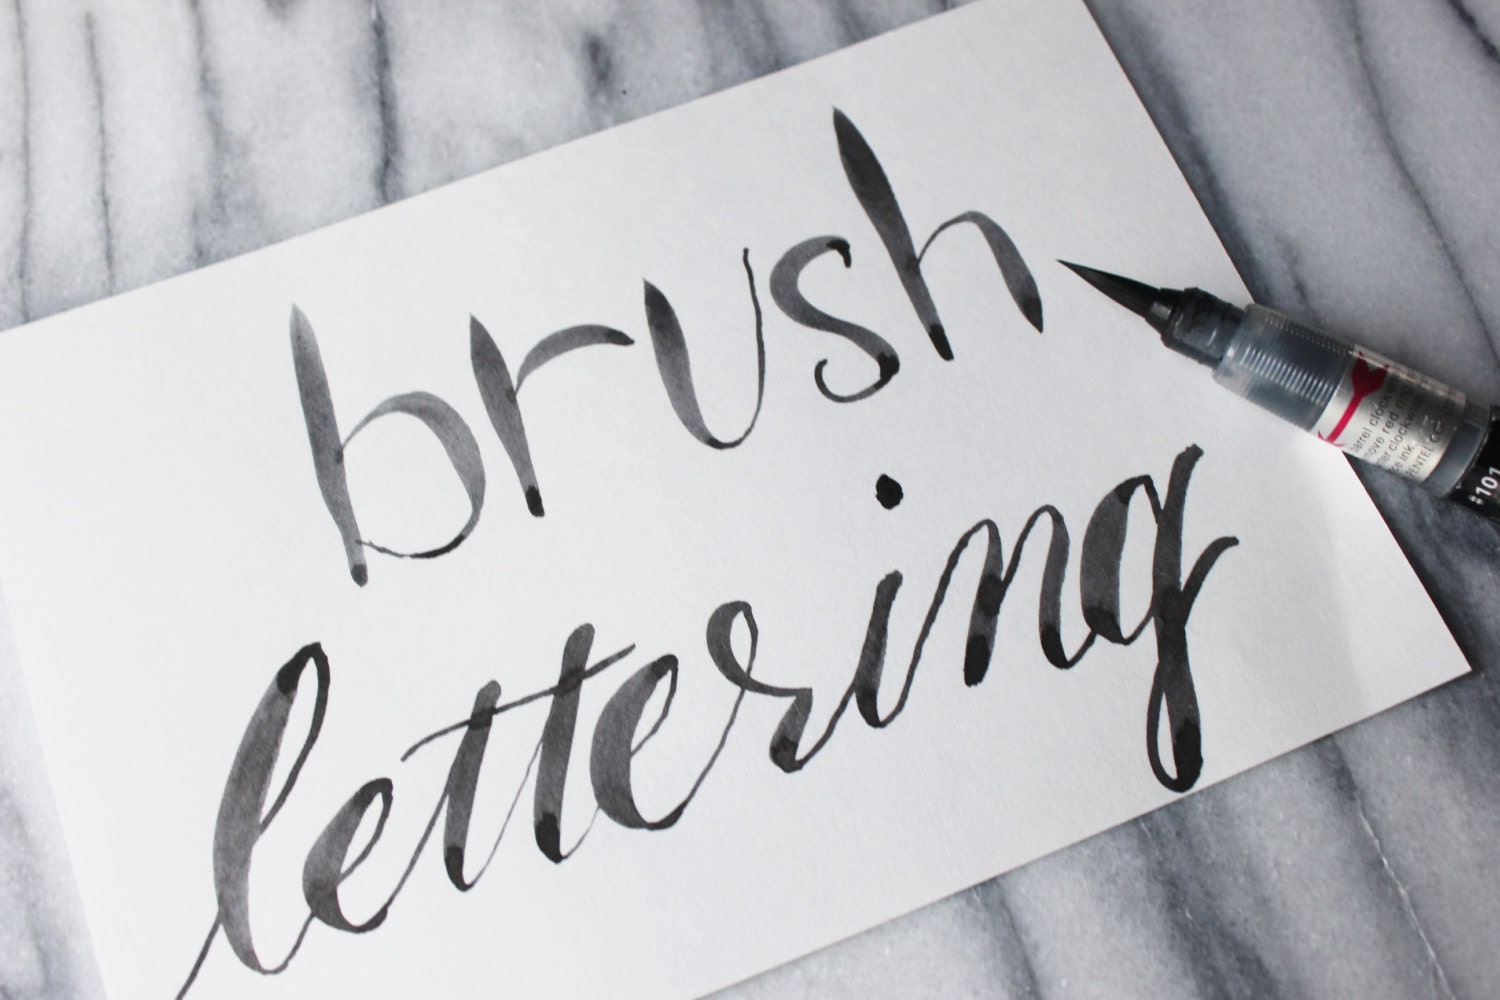 brush
lettering
barrel clock
move red ring
clockw
ink.
PENTEL
#101